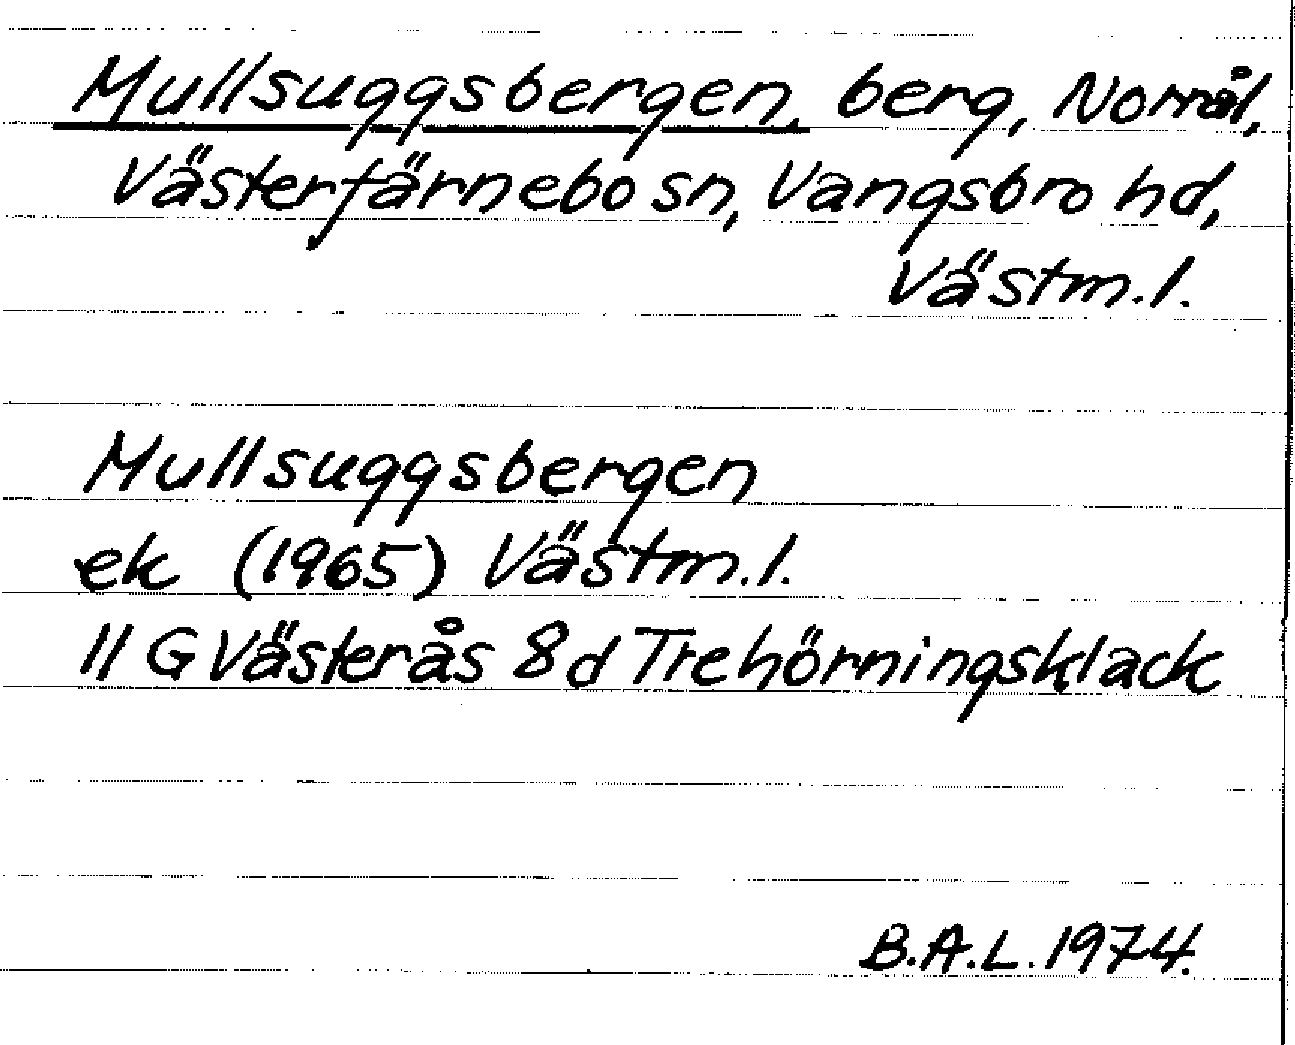 Mullsuggsbergen, berg, Norrål,
Västerfärnebo sn, Vangsbro hd,
Västm.l.
Mullsuggsbergen
ek (1965) Västm.l.
11 G Västerås 8d Trehörningsklack
B.A.L. 1974.